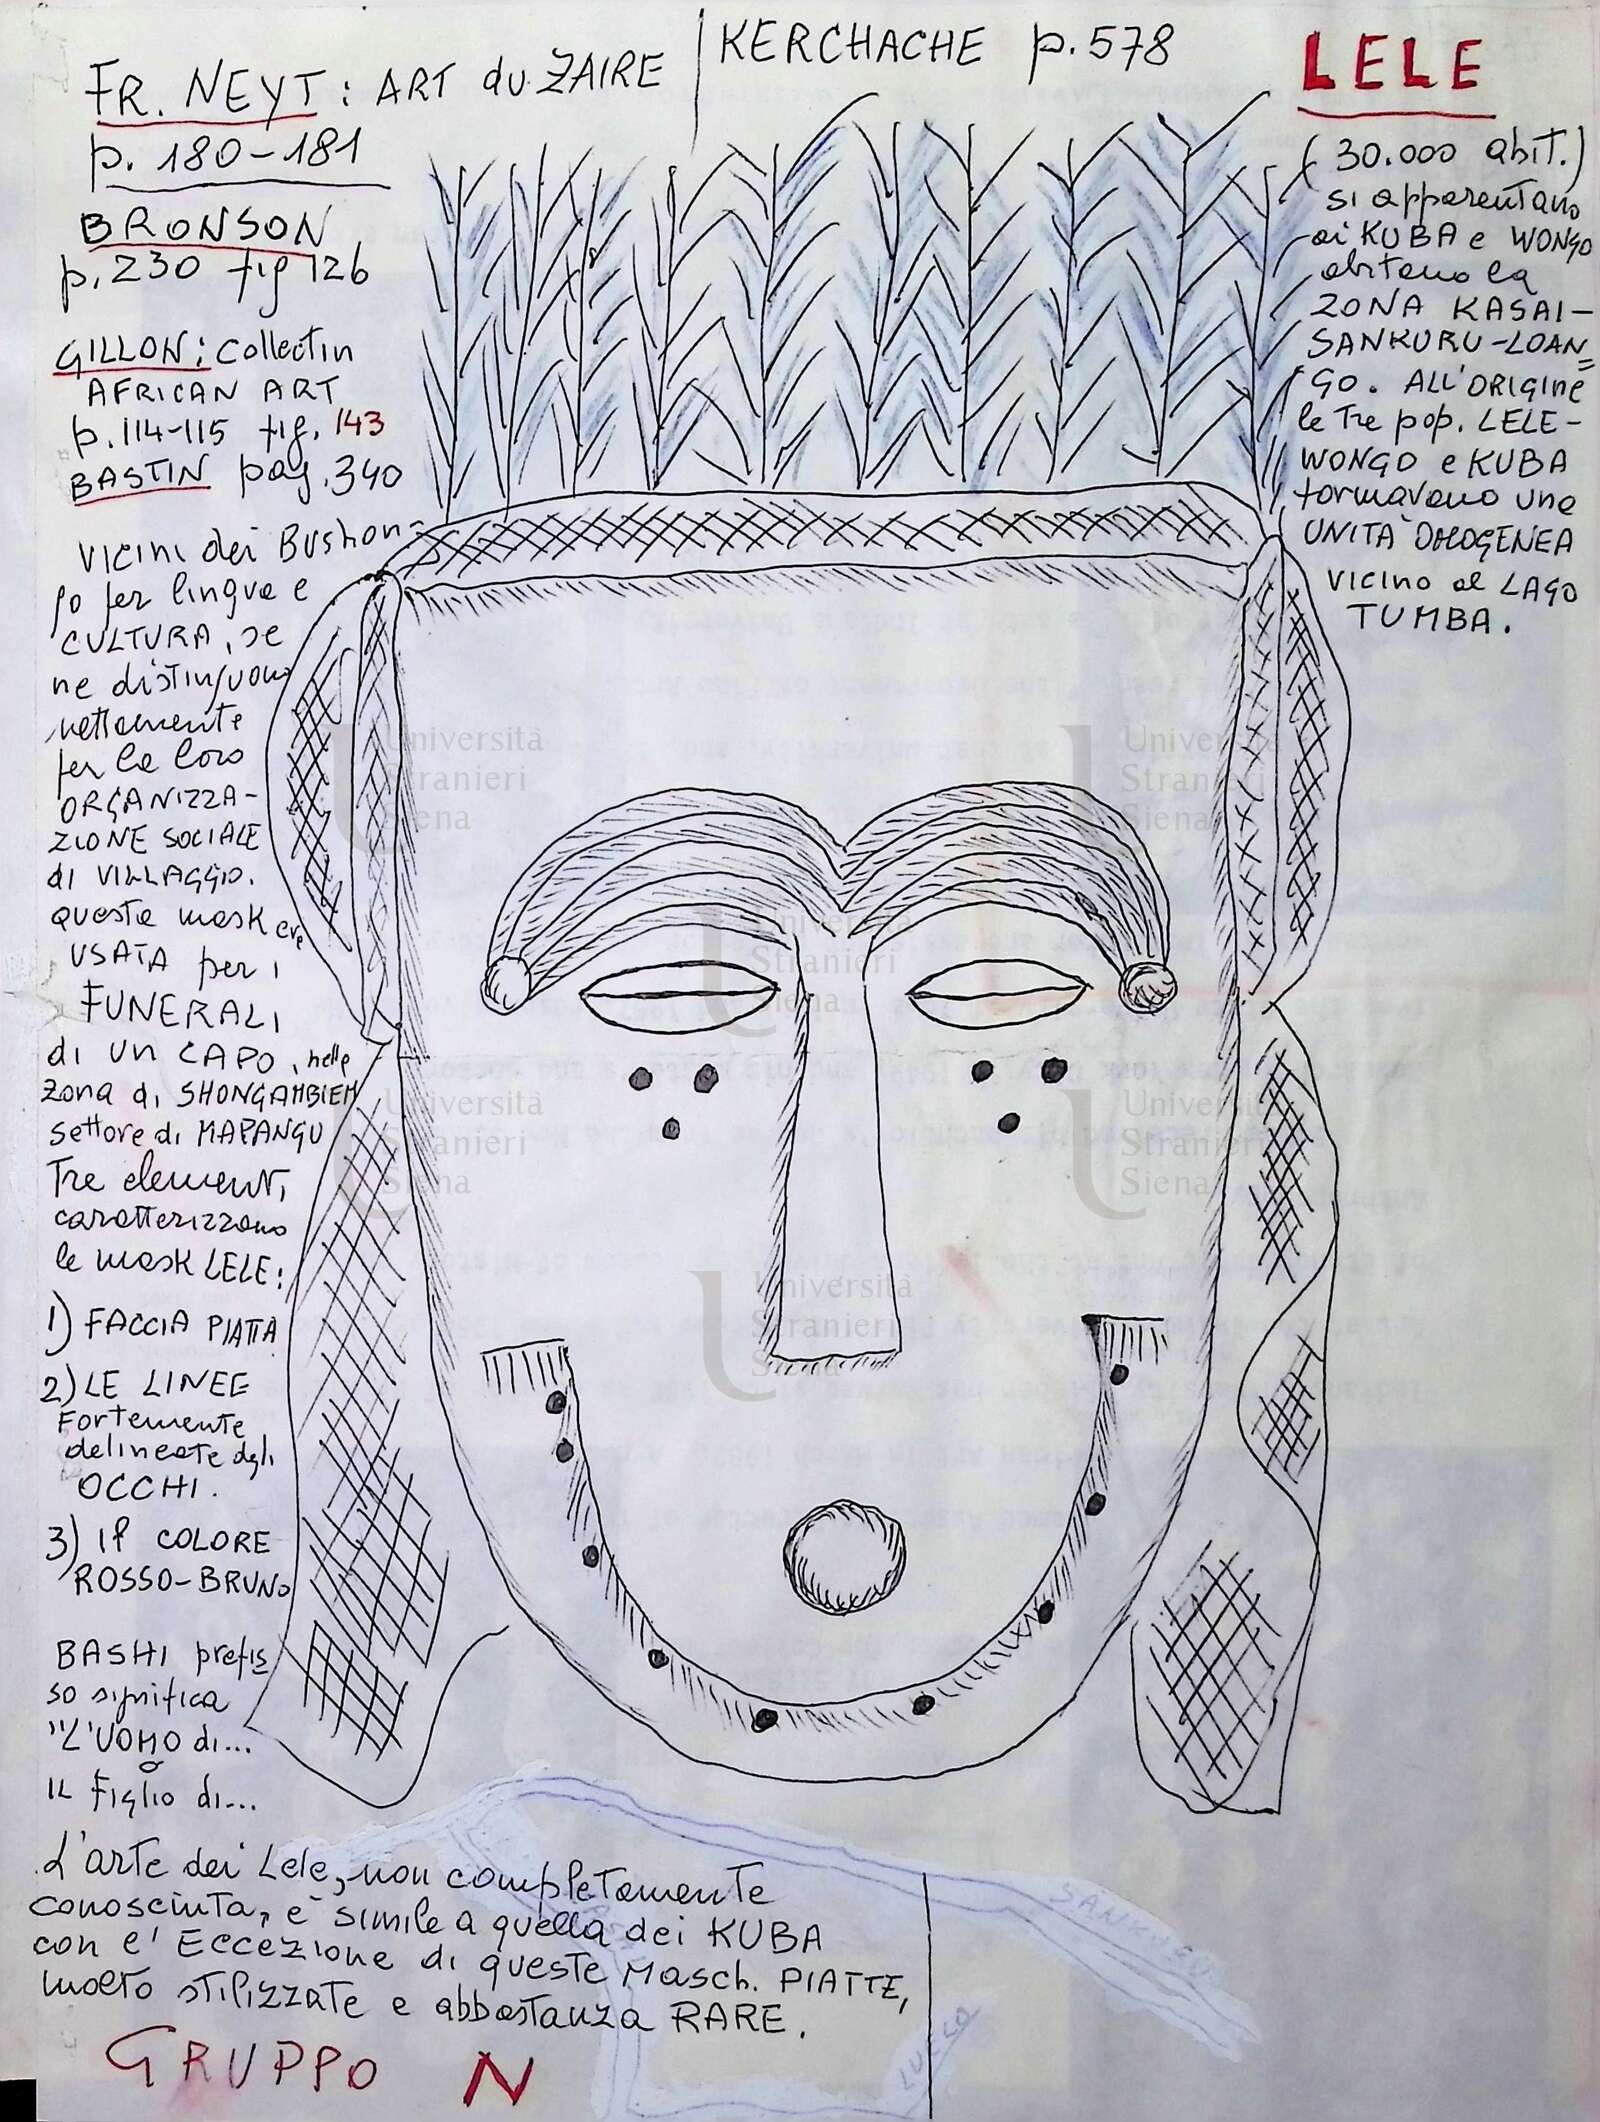 FR. NEYT: ART du ZAIRE
p. 180-181
KERCHACHE p. 578
BRONSON
p. 230 fig 126
GILLON: Collectin
AFRICAN ART
p. 114-115 fig. 143
BASTIN pag. 340
LELE
(30.000 abit.)
si apparentano
ai KUBA e WONGO
abitano la
ZONA KASAI-
SANKURU-LOAN=
GO. ALL'ORIGINE
le Tre pop. LELE-
WONGO e KUBA
formavano una
UNITÀ OMOGENEA
vicino al LAGO
TUMBA.
Vicini dei Bushon=
go per lingua e
CULTURA, se
ne distinguono
nettamente
per la loro
ORGANIZZA-
ZIONE SOCIALE
di VILLAGGIO.
questa mask era
USATA per i
FUNERALI
di un CAPO, nella
zona di SHONGAMBIEM
settore di MAPANGU
Tre elementi
caratterizzano
le mask LELE:
1) FACCIA PIATTA
2) LE LINEE
Fortemente
delineate degli
OCCHI.
3) Il COLORE
ROSSO-BRUNO
BASHI prefis
so significa
"L'UOMO di...
o
IL Figlio di...
L'arte dei Lele, non completamente
conosciuta, è simile a quella dei KUBA
con l'Eccezione di queste Masch. PIATTE,
molto stilizzate e abbastanza RARE.
GRUPPO N
SANKURU
Università
Stranieri
Siena
Università
Stranieri
Siena
Università
Stranieri
Siena
Università
Stranieri
Siena
Università
Stranieri
Siena
Università
Stranieri
Siena